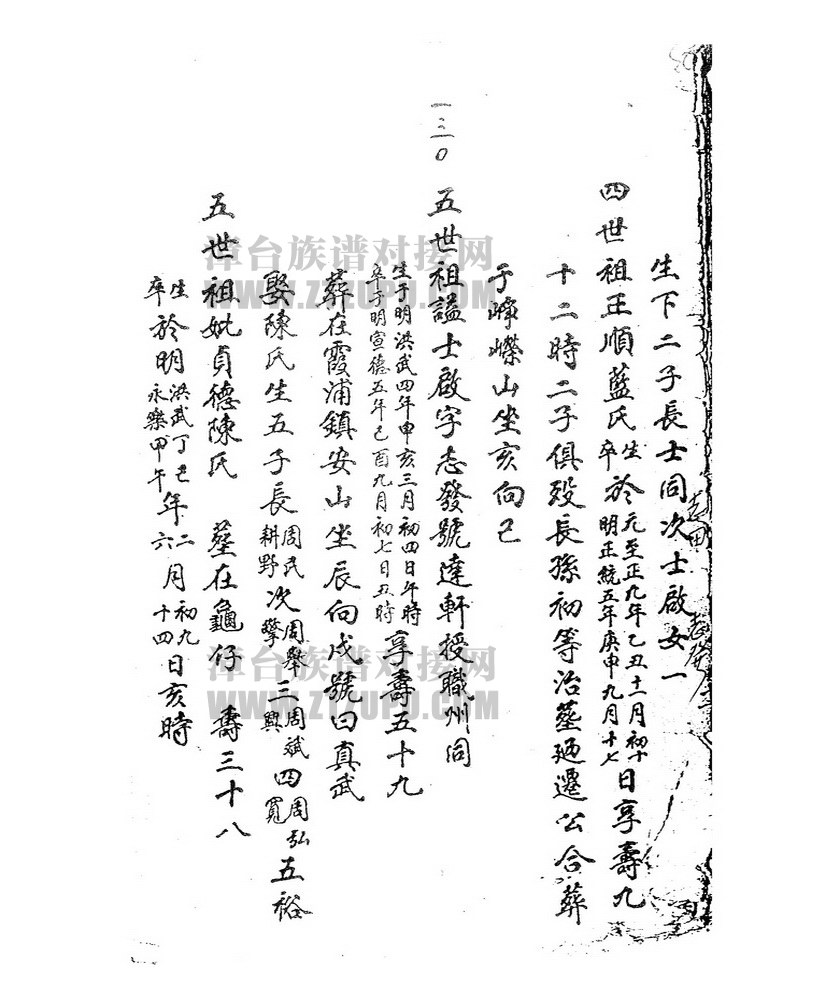 生下二子長士同次士啟女一
志同
志發
四世祖正順藍氏生卒於元至正九年乙丑十一月初十明正統五年庚申九月十七日享壽九
十二時二子俱歿長孫初等治塟廼遷公合葬
于崢嶸山坐亥向巳
一三0
五世祖諡士啟字志發號達軒授職州同
生于明洪武四年申亥三月初四日午時卒于明宣德五年己酉九月初七日丑時享壽五十九
葬在霞浦鎮安山坐辰向戌號曰真武
娶陳氏生五子長周民耕野次周舉擎三周斌興四周弘寬五裕
五世祖妣貞德陳氏 塟在龜仔 壽三十八
生卒於明洪武丁巳永樂甲午年二六月初九十四日亥時
漳台族谱对接网
WWW.ZTZUPU.COM
漳台族谱对接网
WWW.ZTZUPU.COM